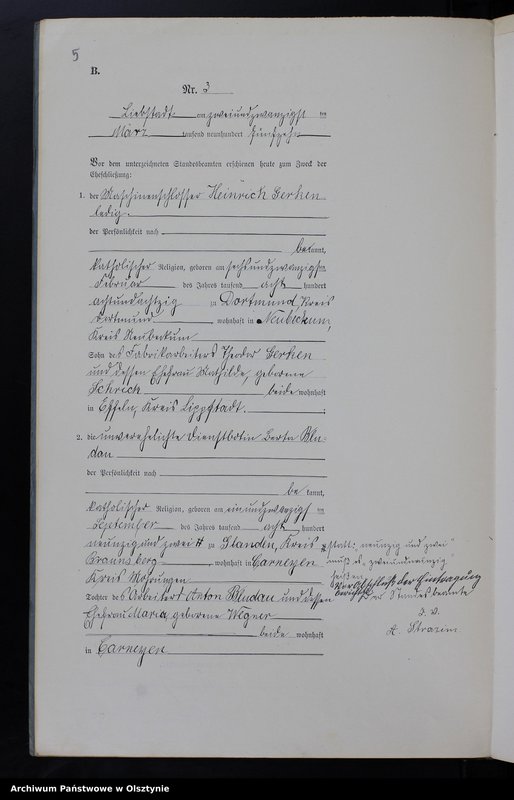 5
B.
Nr. 3
Liebstadt am zweiundzwanzigst en
März tausend neunhundert fünfzehn
Vor dem unterzeichneten Standesbeamten erschienen heute zum Zweck der
Eheschließung:
1. der Maschinenschlosser Heinrich Gerken
ledig.
der Persönlichkeit nach
be kannt,
katholischer Religion, geboren am sechsundzwanzigsten
Februar des Jahres tausend acht hundert
achtundachtzig zu Dortmund Kreis
Dortmund, wohnhaft in Neubeckum,
Kreis Neubeckum
Sohn des Fabrikarbeiters Theodor Gerken
und dessen Ehefrau Mathilde, geborene
Schrick beide wohnhaft
in Effeln, Kreis Lippstadt.
2. die unverehelichte Dienstbotin Berta Blu-
dau
der Persönlichkeit nach
be kannt,
katholischer Religion, geboren am einundzwanzigst en
September des Jahres tausend acht hundert
neunzig und zwei # zu Glanden, Kreis
Braunsberg, wohnhaft in Carneyen
Kreis Mohrungen
Tochter des Arbeiters Anton Bludau und dessen
Ehefrau Maria geborene Wegner
beide wohnhaft
in Carneyen
# statt: „neunzig und zwei"
muß es „zweiundneunzig"
heißen
Vor Abschluß der Eintragung
berichtigt. Der Standesbeamte
I. V.
A.
Archiwum Państwowe w Olsztynie